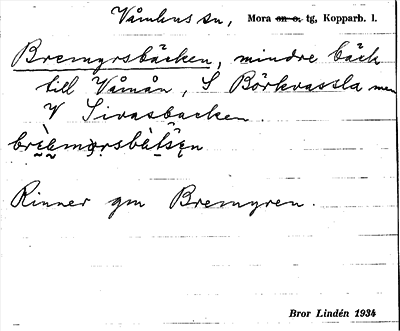 Våmhus sn, Mora on o. tg, Kopparb. l.
Bremyrsbäcken, mindre bäck
till Våmån, S Börkvassla men
V Sivasbacken.
Rinner gm Bremyren.
Bror Lindén 1934